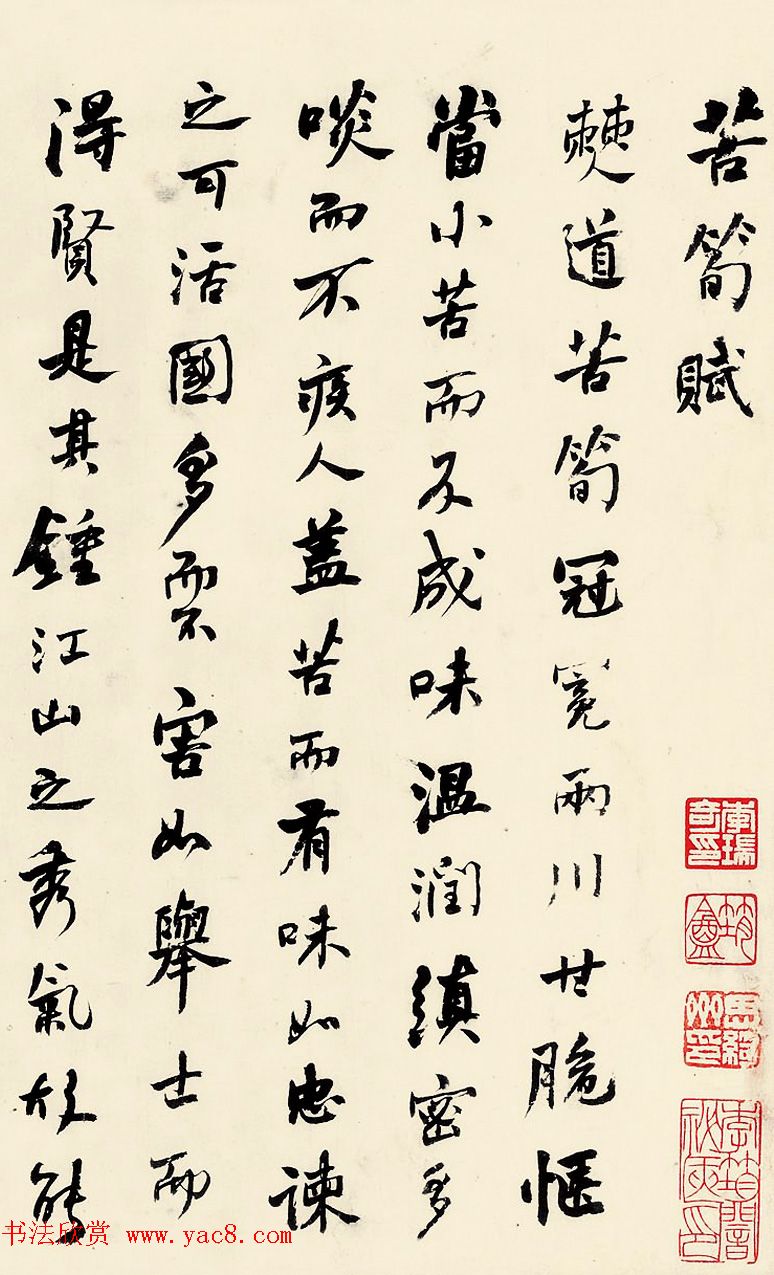 苦筍賦
僰道苦筍冠冕兩川甘脆愜
當小苦而不成味溫潤縝密多
啖而不疾人蓋苦而有味如忠諫
之可活國多而不害如舉士而
得賢是其鍾江山之秀氣故能
李瑞奇印
书法欣赏 www.yac8.com